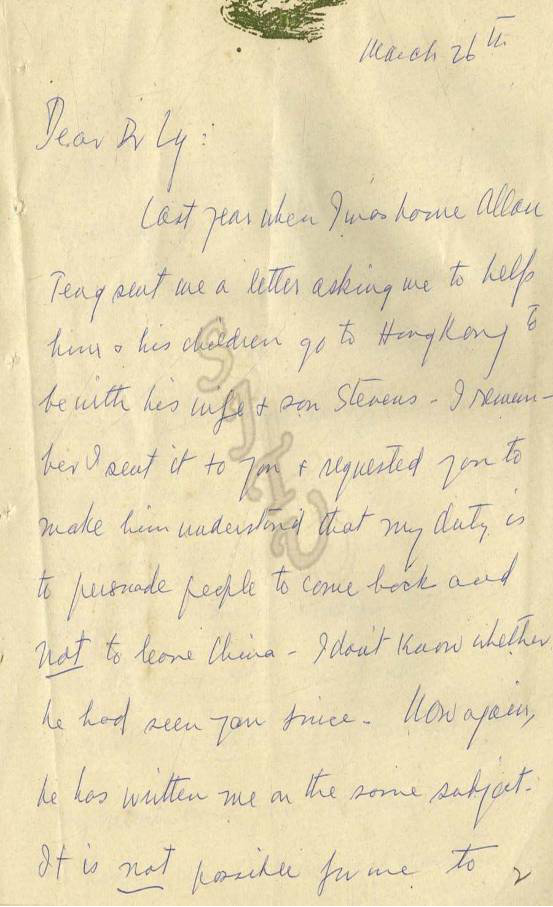 March 26th
Dear Dr Ly:
Last year when I was home Allan
Teng sent me a letter asking me to help
him & his children go to Hong Kong to
be with his wife & son Stevens - I remem-
ber I sent it to you & requested you to
make him understand that my duty is
to persuade people to come back and
not to leave China - I don't know whether
he had seen you since. Now again,
he has written me on the same subject.
It is not possible for me to
2